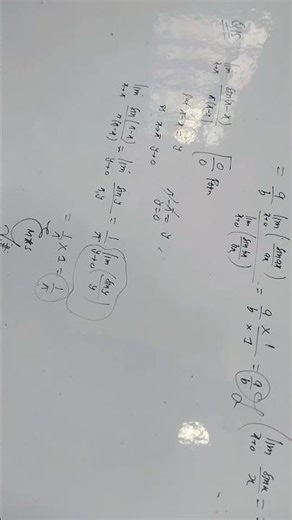 = a/b lim x→0 (sin ax / ax) / lim x→0 (sin bx / bx) = a/b × 1/1 = a/b
( lim x→0 sin x / x =
Q15
lim x→π sin(π-x) / π(π-x) [0/0 form
Put π-x = y
as x→π y→0
π-π = y,
y=0
lim x→π sin(π-x) / π(π-x) = lim y→0 sin y / πy = 1/π ( lim y→0 sin y / y )
= 1/π × 1 = 1/π